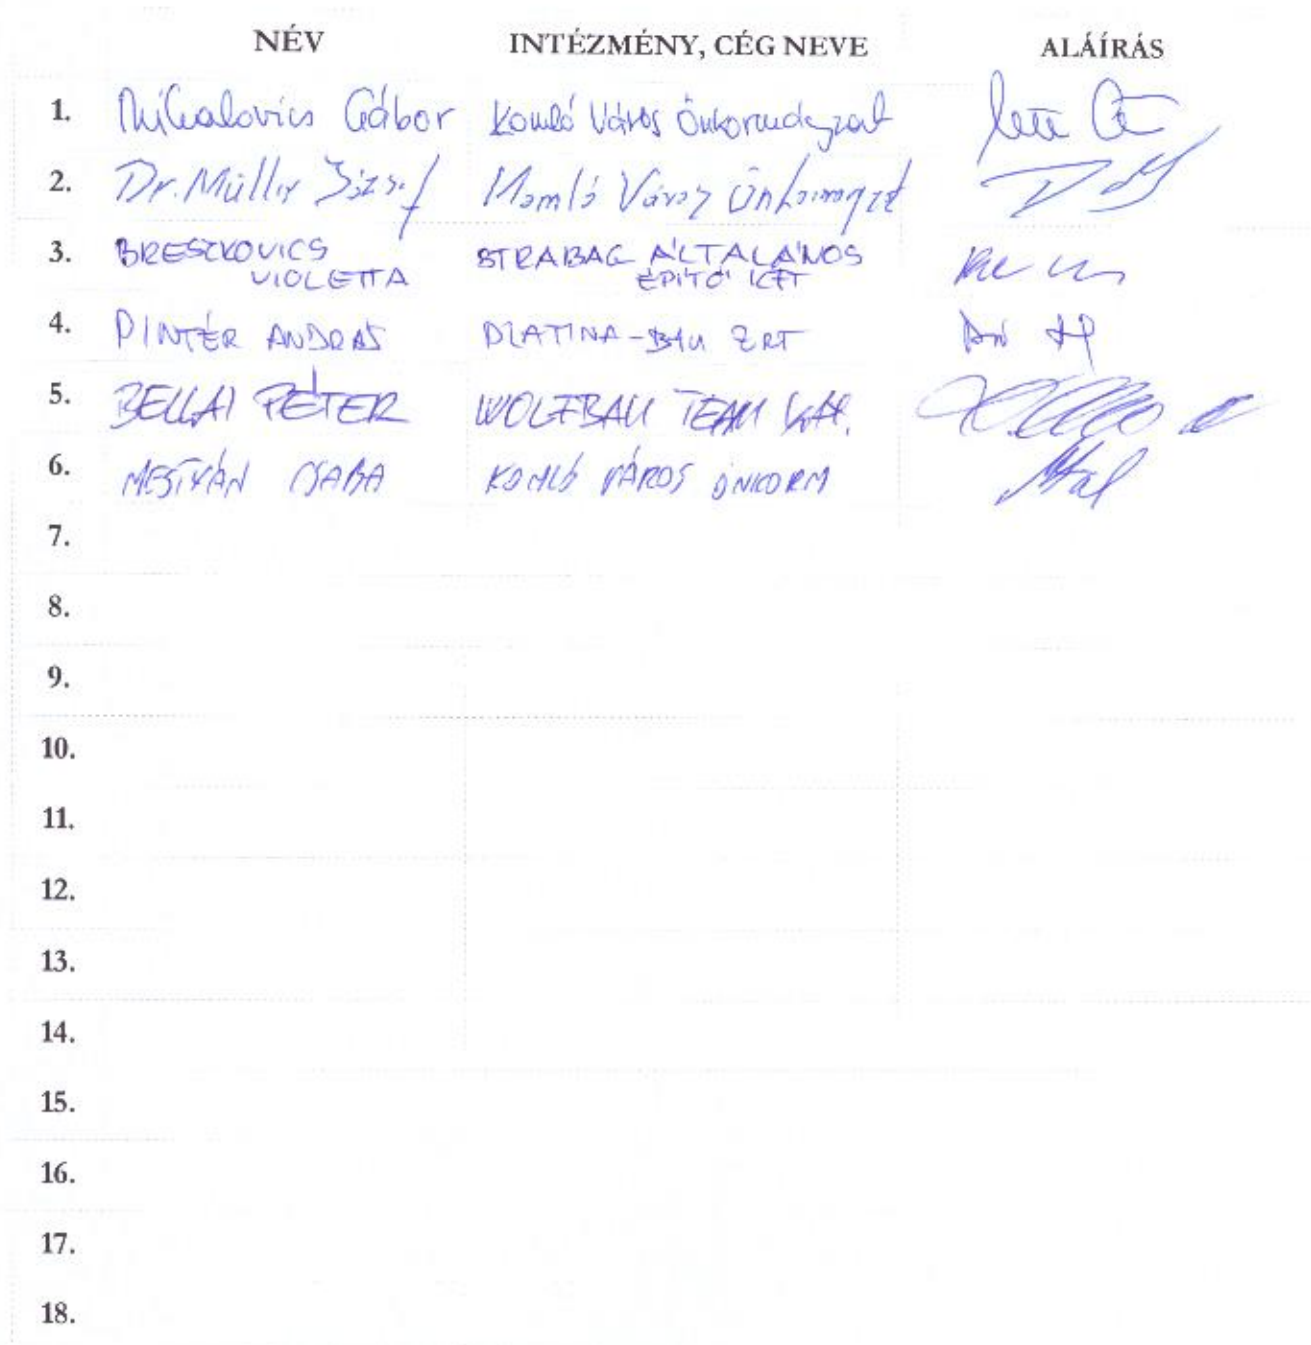 NÉV INTÉZMÉNY, CÉG NEVE ALÁÍRÁS
1. Mihalovics Gábor Komló Város Önkormányzat
2. Dr. Müller József Komló Város Önkormányzat
3. BRESZKOVICS VIOLETTA STRABAG ÁLTALÁNOS ÉPÍTŐ KFT
4. PINTÉR ANDRÁS PLATINA-BAU ZRT
5. BELLAI PÉTER WOLFBAU TEAM Kft.
6. MESTYÁN CSABA KOMLÓ VÁROS ÖNKORM
7.
8.
9.
10.
11.
12.
13.
14.
15.
16.
17.
18.